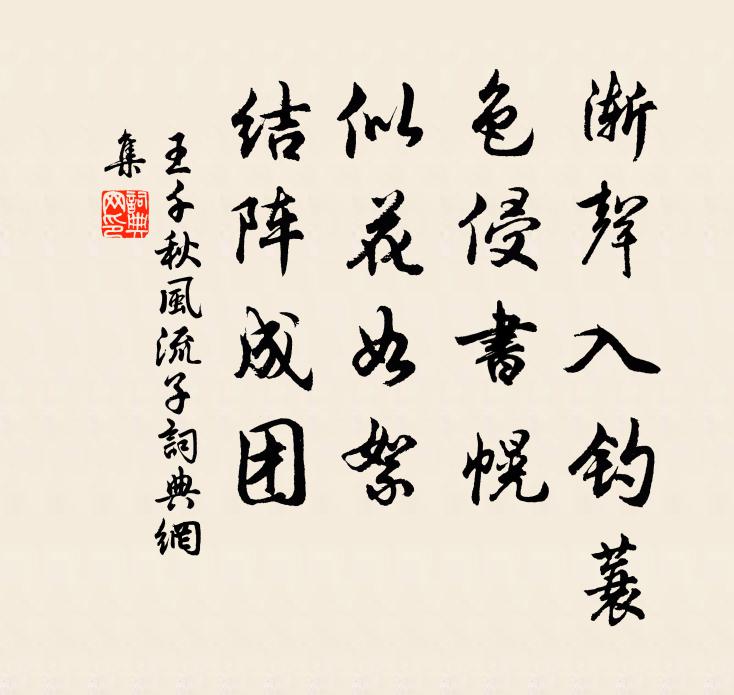 渐聲入钓蓑
色侵書幌
似花如絮
结阵成团
王千秋風流子詞典網
集
詞典网印